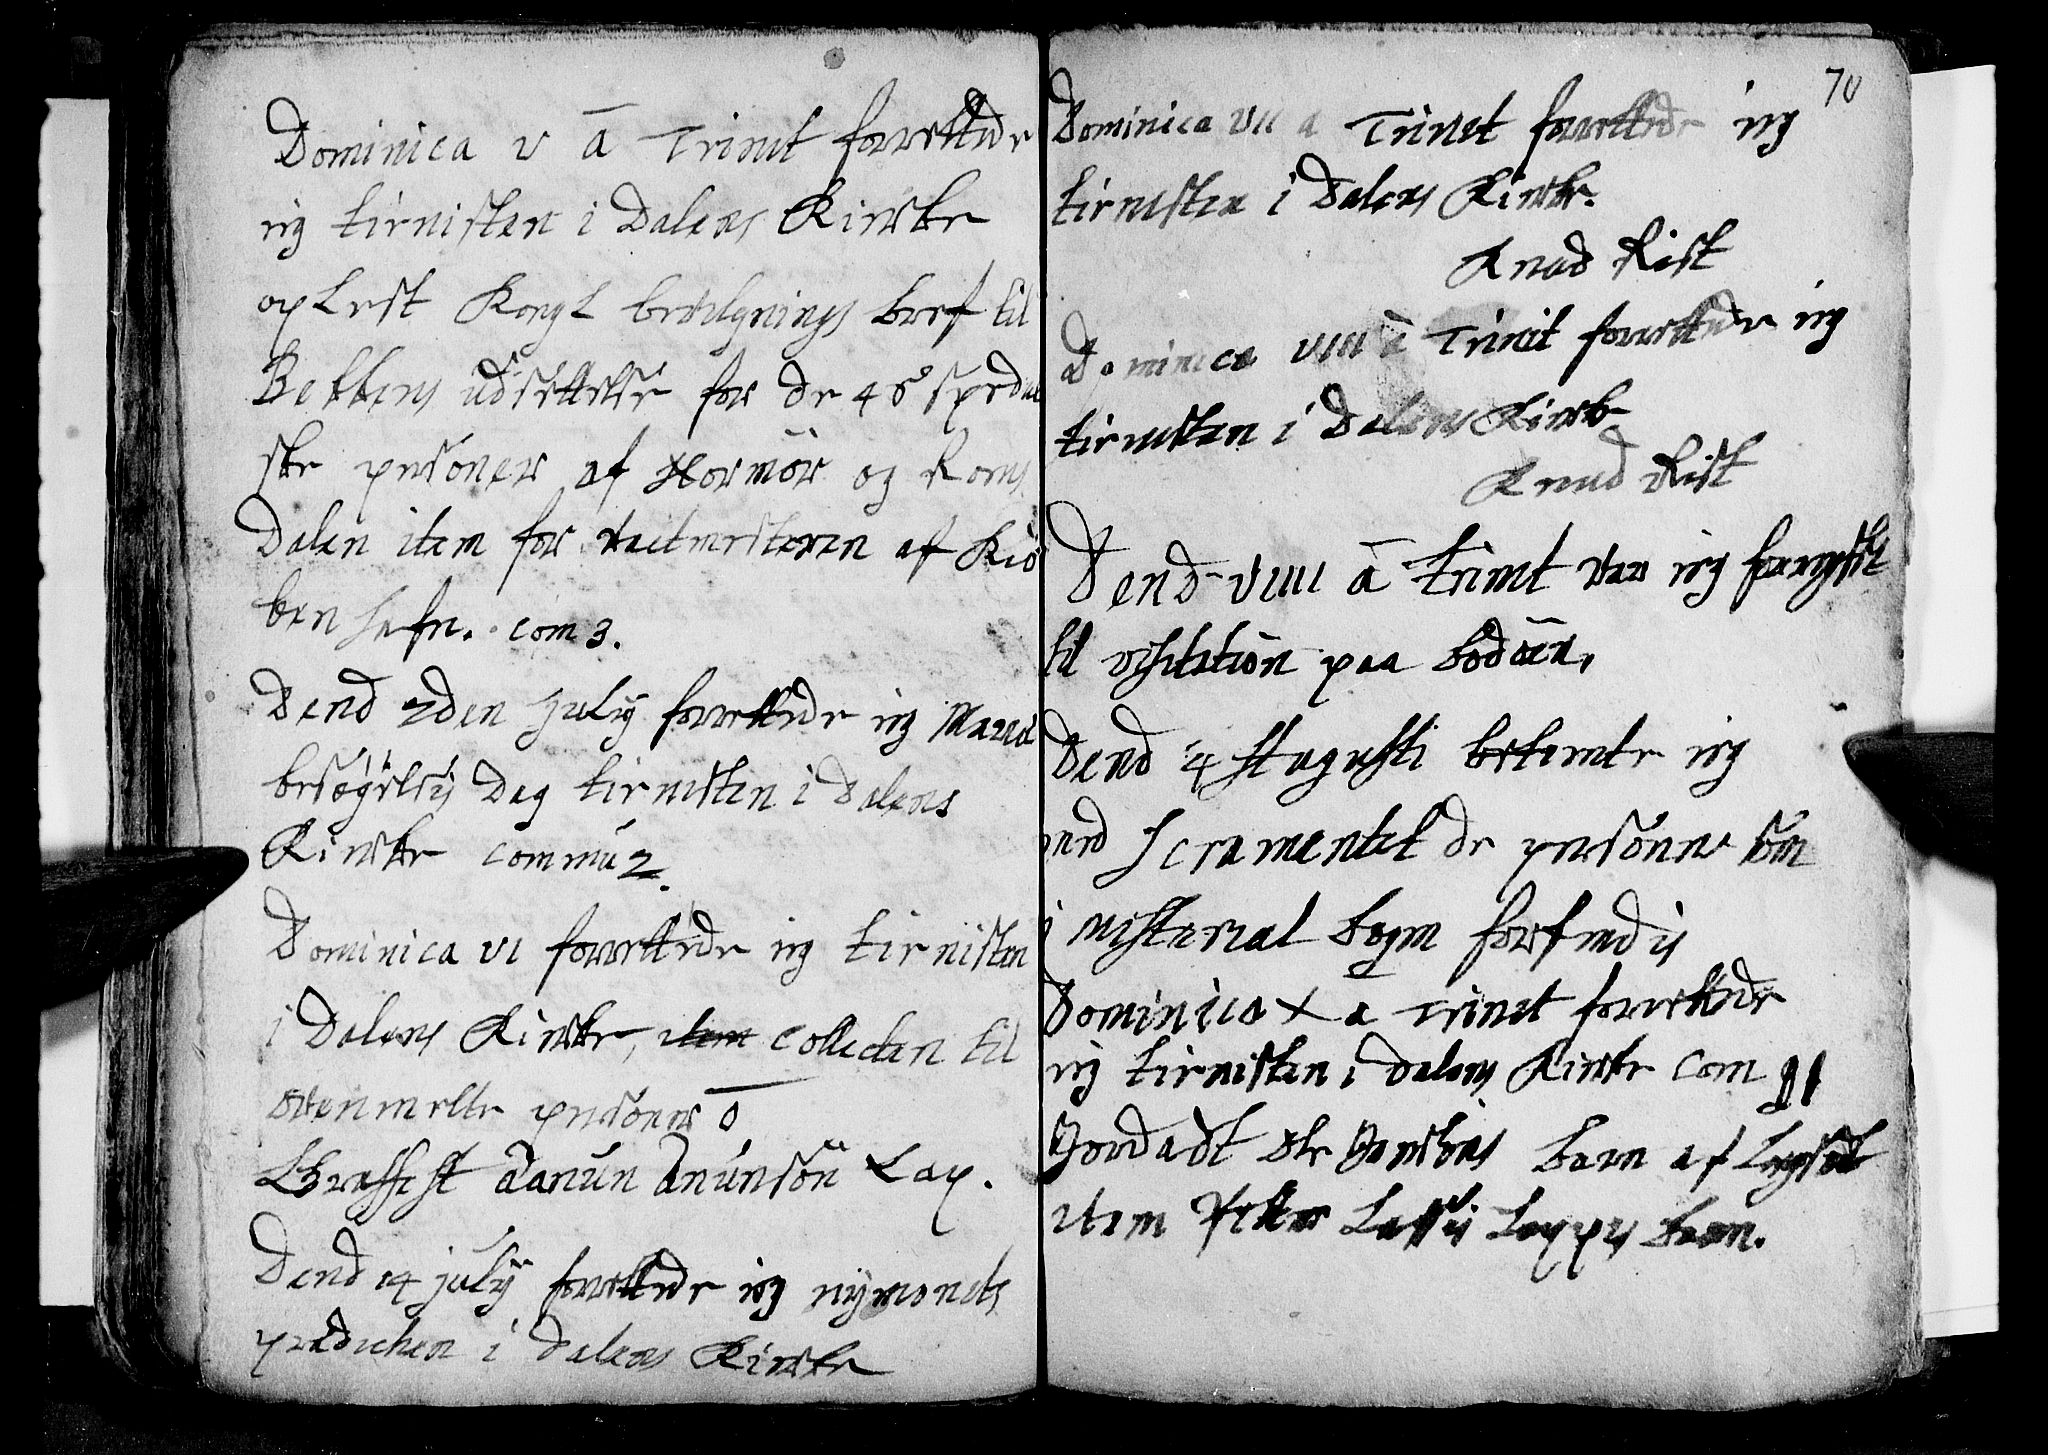 Dominica v ā Trinit forrettede
ieg tienisten i Dalens Kircke
op Lest Kongl bevilgnings bref til
Bekkens udsettelse for de 46 spedal
ske personer af Normör og Roms
Dalen item for
af Kiö
ben hafn. com 3.
Dend 2den july forrettede ieg Mariæ
besögelsis Dag tienisten i Dalens
Kircke commu 2.
Dominica vi forrettede ieg tienisten
i Dalens Kircke, item Collecten til
ovenmelte personer 0
Anunsön Lap.
Dend 14 july forrettede ieg nÿmonets
prædicken i Dalens Kircke
70
Dominica vii a Trinet forrettede ieg
tienisten i Dalens Kircke.
Knud Rist
Dominica viii ā Trinit forrettede ieg
tienisten i Dalens Kircke
Knud Rist
Dend viiii ā trinit var ieg
til visitatiön paa Bodöen,
Dend 4 Augusti betiente ieg
med Sacramentet de personer som
i misterial bogen forfindis
Dominica x a Trinet forrettede
ieg tienisten i Dalens Kircke Com 11
Jordadt Ole barn af
item Petter Lassis Lappis barn.